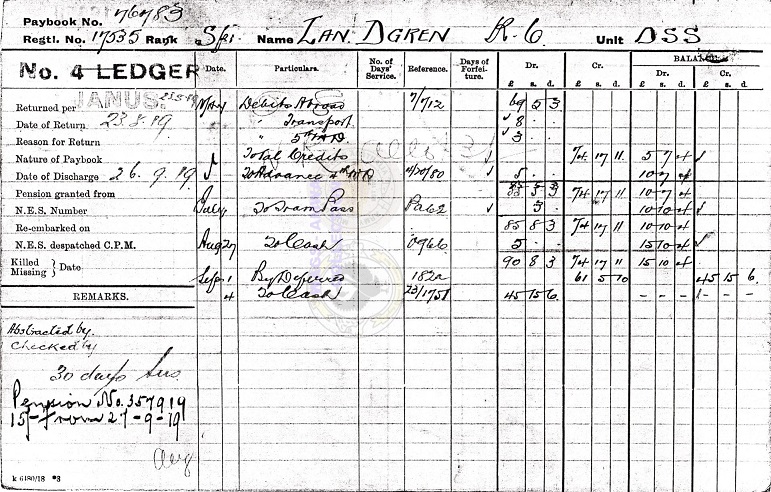 Paybook No. 76783
Regtl. No. 17535 Rank Spr. Name LAN DGREN R. G. Unit DSS
No. 4 LEDGER
JANUS 23.8.19
Date. Particulars. No. of Days' Service. Reference. Days of Forfeiture. Dr. £ s. d. Cr. £ s. d. BALANCE Dr. £ s. d. Cr. £ s. d.
Returned per
Date of Return 23.8.19
Reason for Return
Nature of Paybook
Date of Discharge 26.9.19
Pension granted from
N.E.S. Number
Re-embarked on
N.E.S. despatched C.P.M.
Killed Missing } Date
REMARKS.
Abstracted by.
Checked by
30 days
Pension No. 357919
15/- from 27-9-19
k 6180/18 *3
May Debits Abroad 7/712 69 5 3
" Transport 8
" 5th M D 3
Total Credits 74 17 11 5 7 4
To Advance 4th M D 4/20/80 5 . . 10 7 4
85 5 3 74 17 11 10 7 4
To Tram Pass Pa62 3 . 10 10 4
85 8 3 74 17 11 10 10 4
Aug 27 To Cash 0966 5 . . 15 10 4
90 8 3 74 17 11 15 10 4
Sep 1 By Deferred 182a 61 5 10 45 15 6
4 To Cash 23/1751 45 15 6 - - - - - -